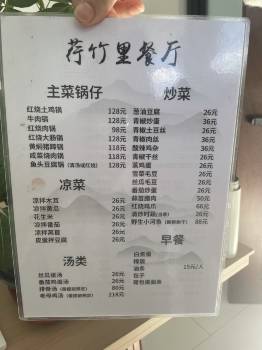 荷竹里餐厅
主菜锅仔
红烧土鸡锅 128元
牛肉锅 128元
红烧肉锅 98元
红烧大肠锅 128元
黄焖猪蹄锅 128元
咸菜烧肉锅 118元
鱼头豆腐锅 118元
凉菜
凉拌木耳 26元
凉拌黄瓜 26元
花生米 26元
凉拌番茄 26元
凉拌莴苣 26元
皮蛋拌豆腐 26元
汤类
丝瓜蛋汤 26元
番茄鸡蛋汤 26元
排骨汤
老母鸡汤
炒菜
葱油豆腐 26元
青椒炒蛋 36元
青椒土豆丝 26元
青椒肉丝 36元
酸辣鸡杂 36元
青椒干丝 26元
荡鸡蛋 26元
雪菜毛豆 26元
丝瓜毛豆 26元
番茄炒蛋 26元
蒜苔爆肉 36元
红烧鸡爪 66元
清炒时蔬 26元
野生小河鱼 66元
早餐
白煮蛋
稀饭
油条
包子
15元/人